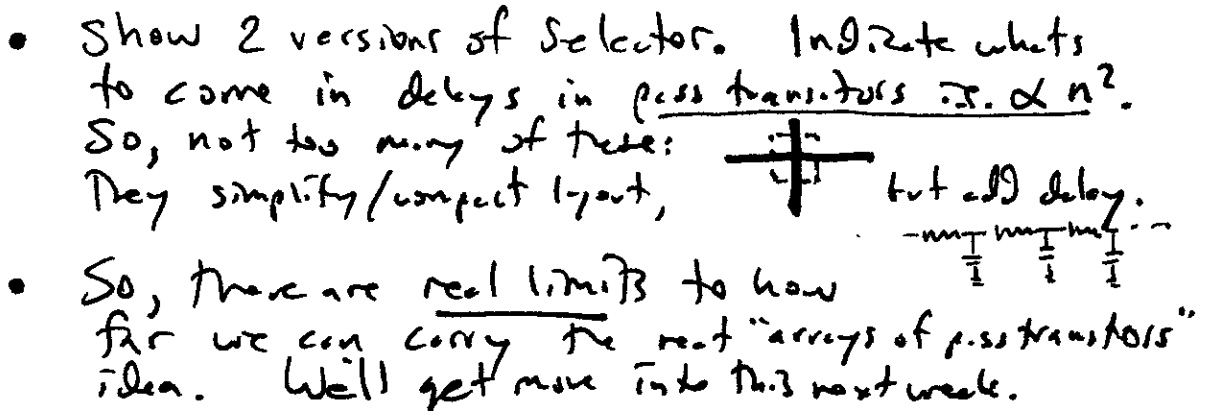 • Show 2 versions of Selector. Indicate whats
to come in delays in pass transistors is. ∝ n².
So, not too many of these:
They simplify/compact layout, but add delay.
• So, there are real limits to how
far we can carry the neat "arrays of pass transistors"
idea. We'll get more into this next week.